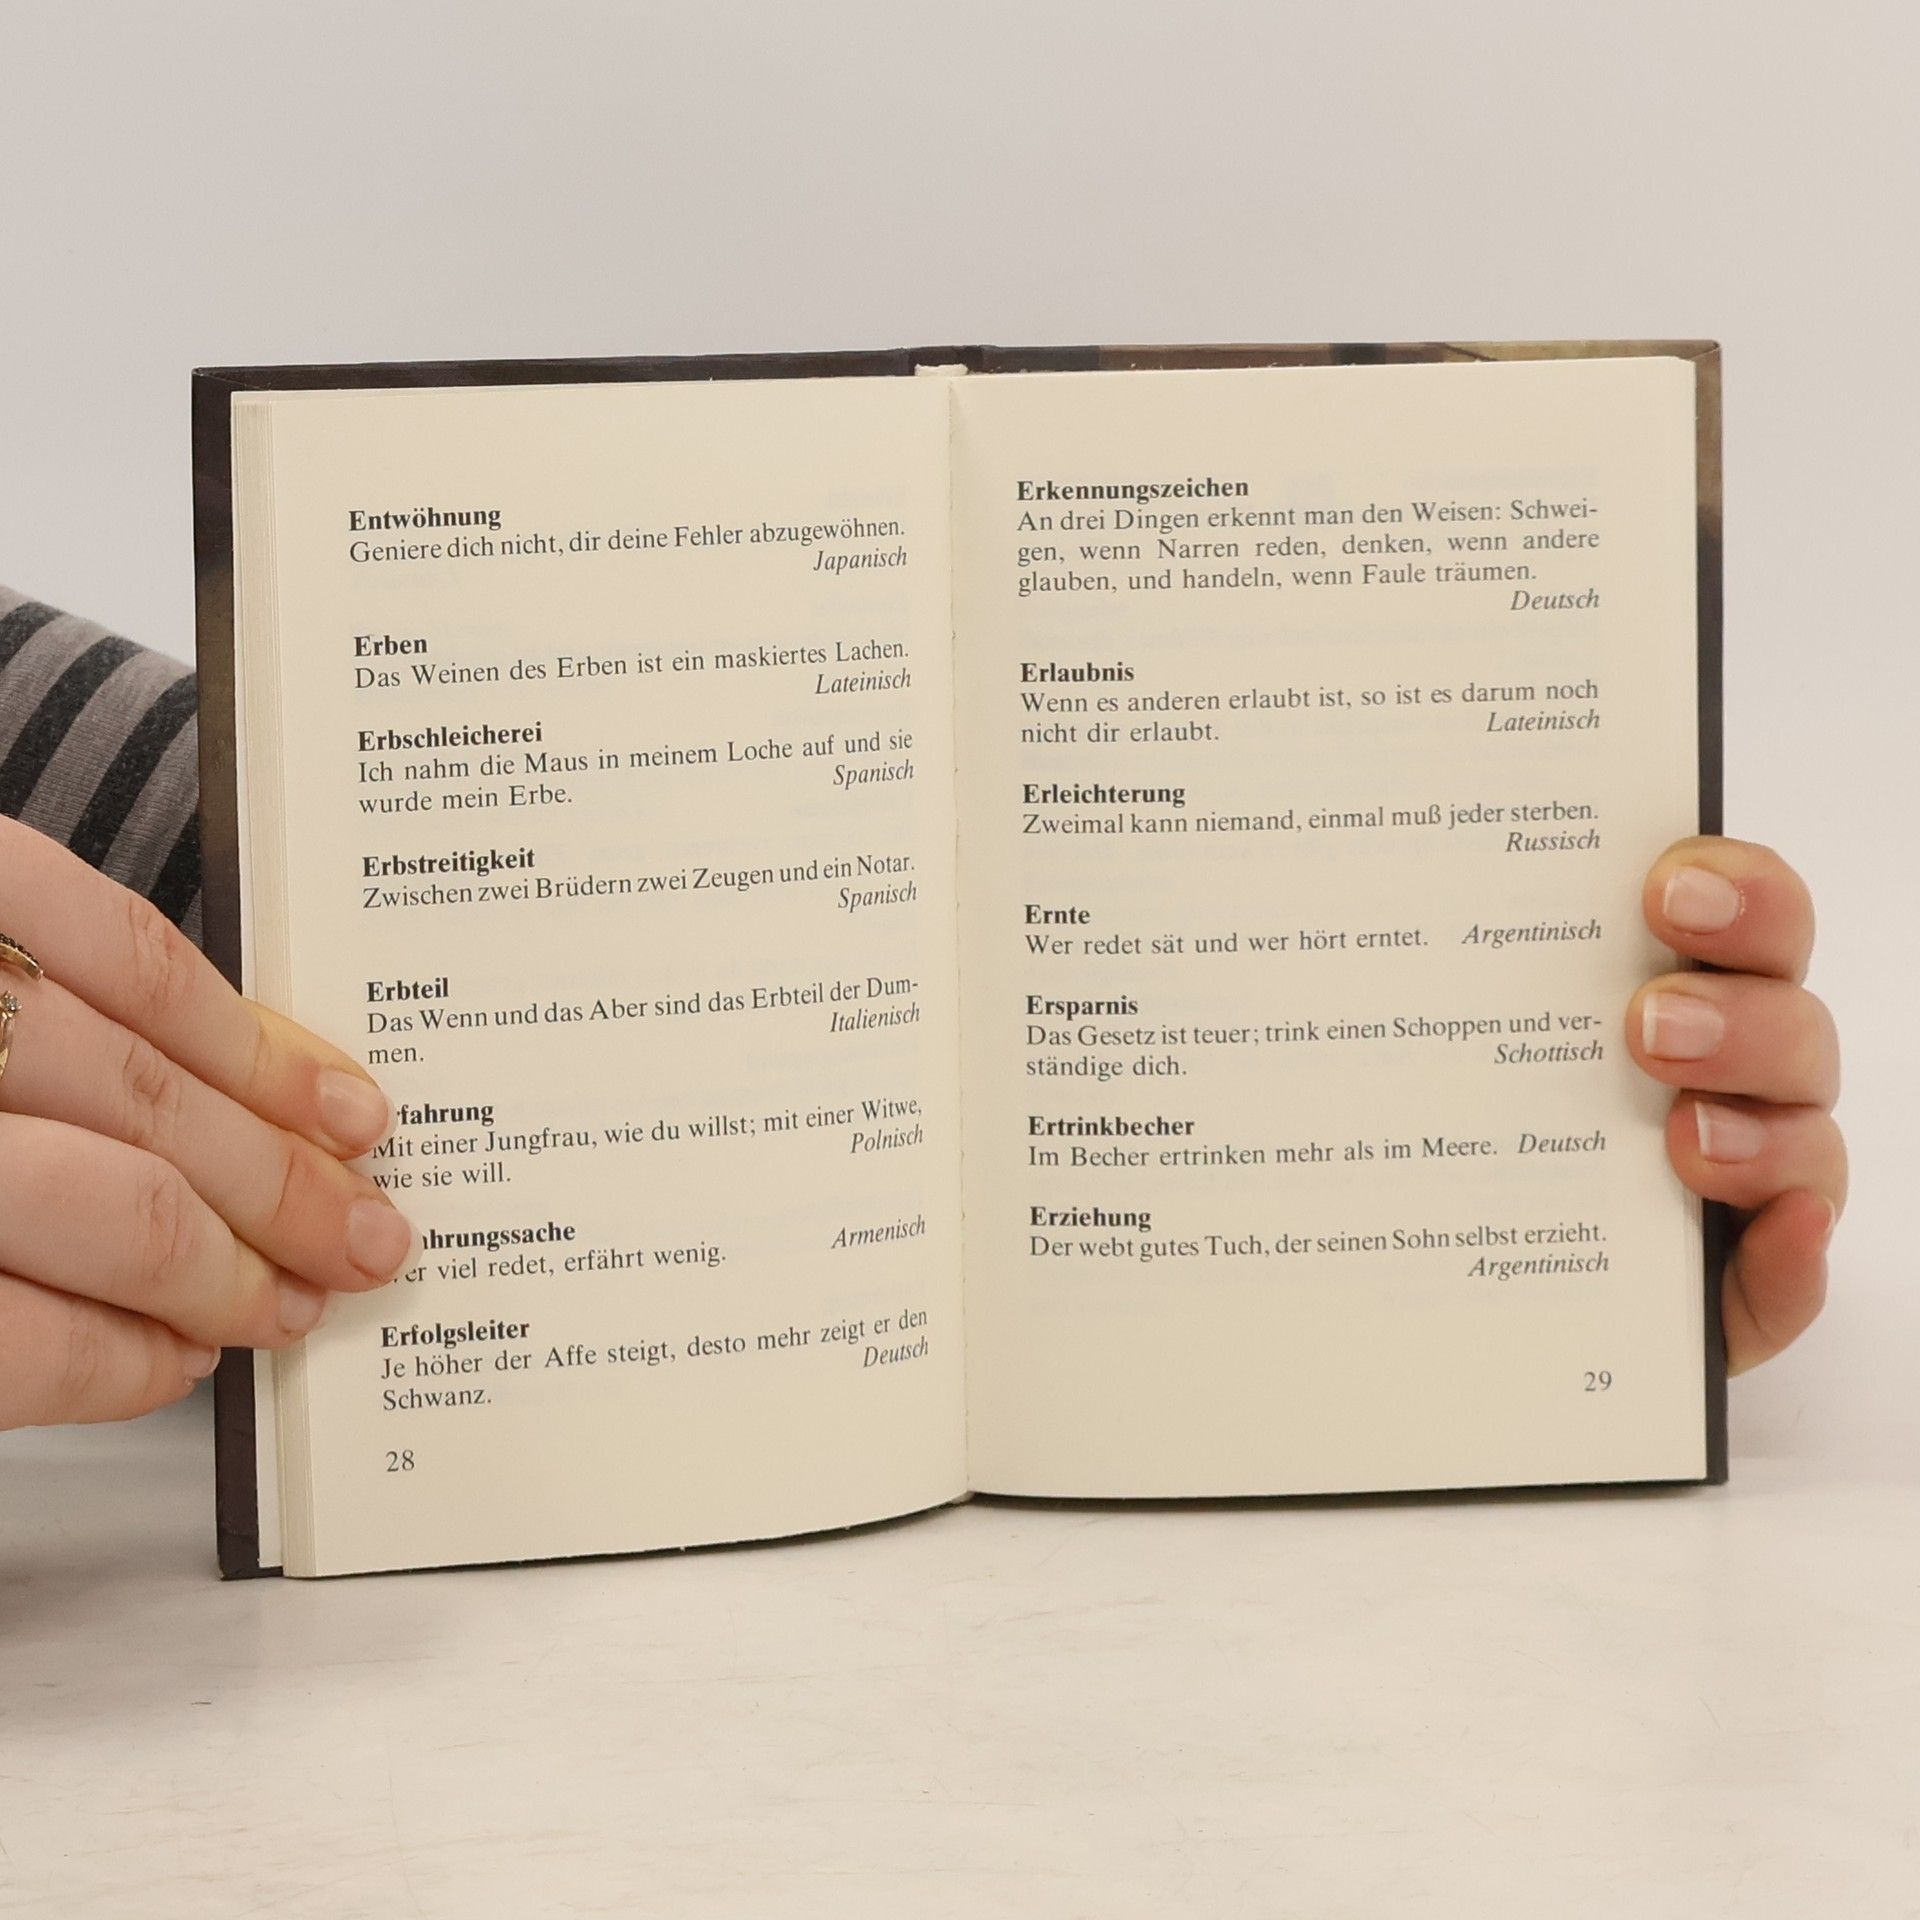 Entwöhnung
Geniere dich nicht, dir deine Fehler abzugewöhnen.
Japanisch
Erben
Das Weinen des Erben ist ein maskiertes Lachen.
Lateinisch
Erbschleicherei
Ich nahm die Maus in meinem Loche auf und sie
wurde mein Erbe. Spanisch
Erbstreitigkeit
Zwischen zwei Brüdern zwei Zeugen und ein Notar.
Spanisch
Erbteil
Das Wenn und das Aber sind das Erbteil der Dum-
men. Italienisch
rfahrung
Mit einer Jungfrau, wie du willst; mit einer Witwe,
wie sie will. Polnisch
ahrungssache
Wer viel redet, erfährt wenig. Armenisch
Erfolgsleiter
Je höher der Affe steigt, desto mehr zeigt er den
Schwanz. Deutsch
28
Erkennungszeichen
An drei Dingen erkennt man den Weisen: Schwei-
gen, wenn Narren reden, denken, wenn andere
glauben, und handeln, wenn Faule träumen.
Deutsch
Erlaubnis
Wenn es anderen erlaubt ist, so ist es darum noch
nicht dir erlaubt. Lateinisch
Erleichterung
Zweimal kann niemand, einmal muß jeder sterben.
Russisch
Ernte
Wer redet sät und wer hört erntet. Argentinisch
Ersparnis
Das Gesetz ist teuer; trink einen Schoppen und ver-
ständige dich. Schottisch
Ertrinkbecher
Im Becher ertrinken mehr als im Meere. Deutsch
Erziehung
Der webt gutes Tuch, der seinen Sohn selbst erzieht.
Argentinisch
29